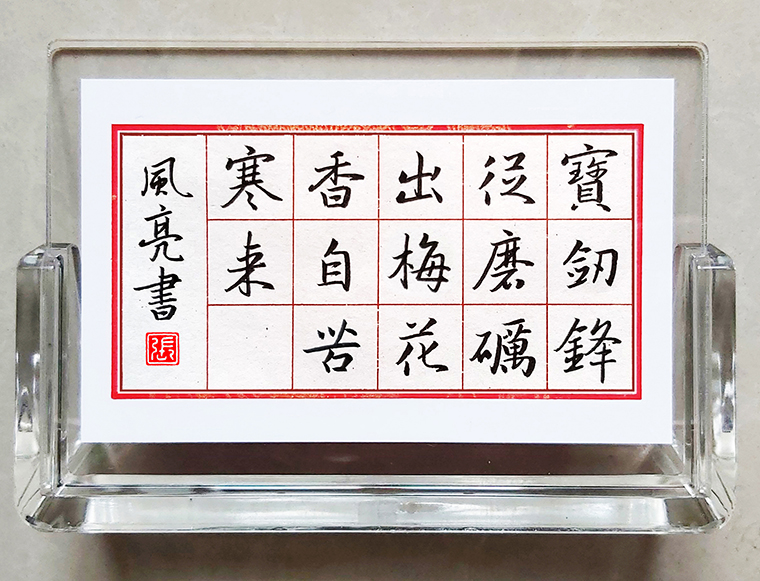 寶劒鋒
從磨礪
出梅花
香自苦
寒来
風亮書
張